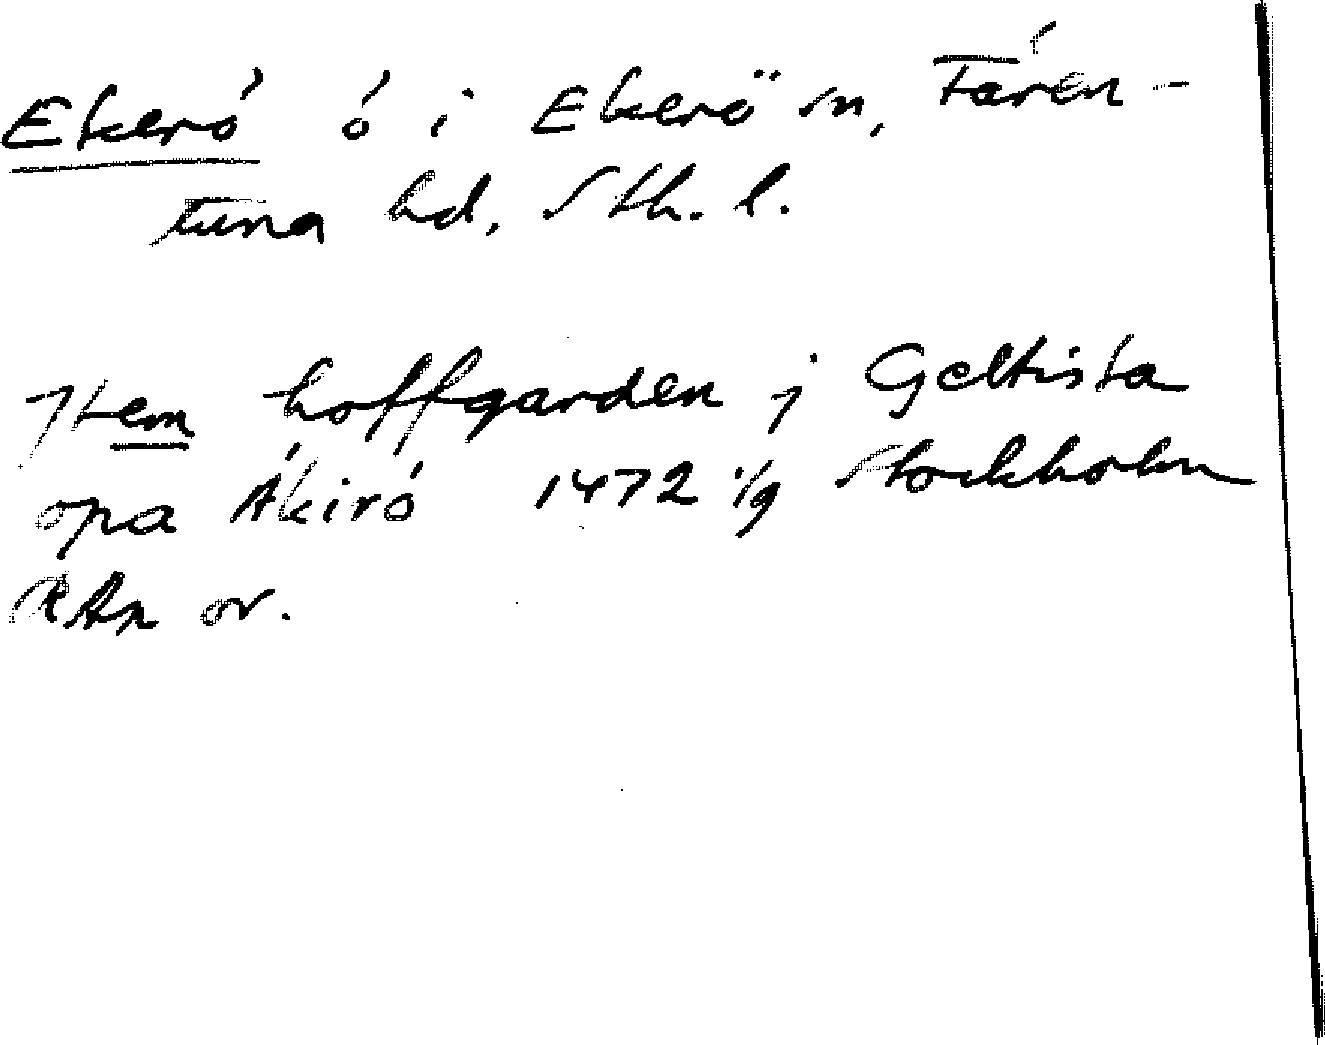 Ekeró ó i Ekerö sn, Fáren-
tuna hd, Sth. l.
Item hoffgarden j Geltista
opa Ákiró 1472 1/9 Stockholm
RAp or.